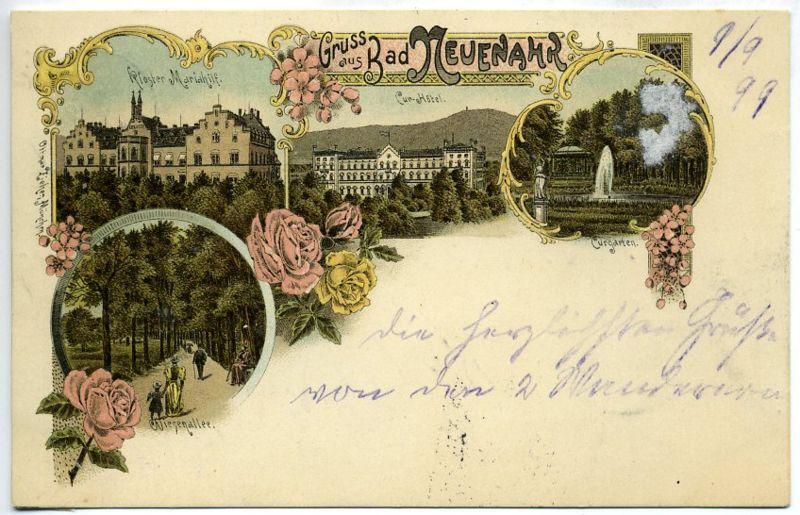 Gruss
aus Bad NEUENAHR
9/9
99
Kloster Mariahilf.
Cur-Hôtel.
Curgarten.
Wiesenallee.
die herzlichsten Grüße
von den 2 Wanderern